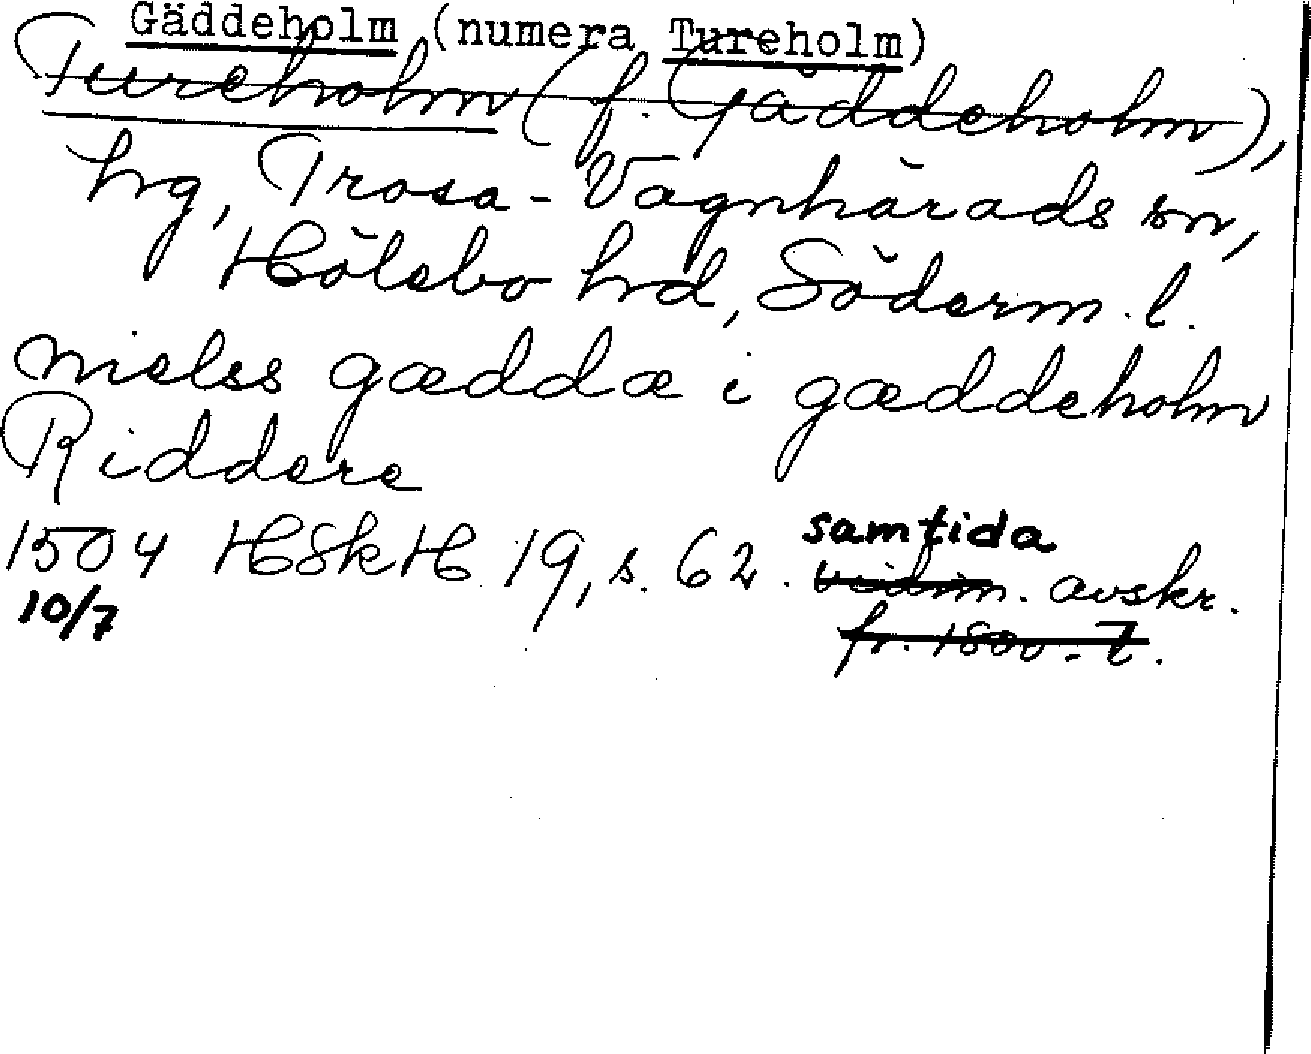 Gäddeholm (numera Tureholm)
Tureholm (f. Gäddeholm),
hg, Trosa-Vagnhärads sn,
Hölebo hd, Söderm. l.
nielss gædda i gæddeholm
Riddere
1504 HSkH 19, s. 62. samtida vidim. avskr.
10/7 fr. 1800-t.